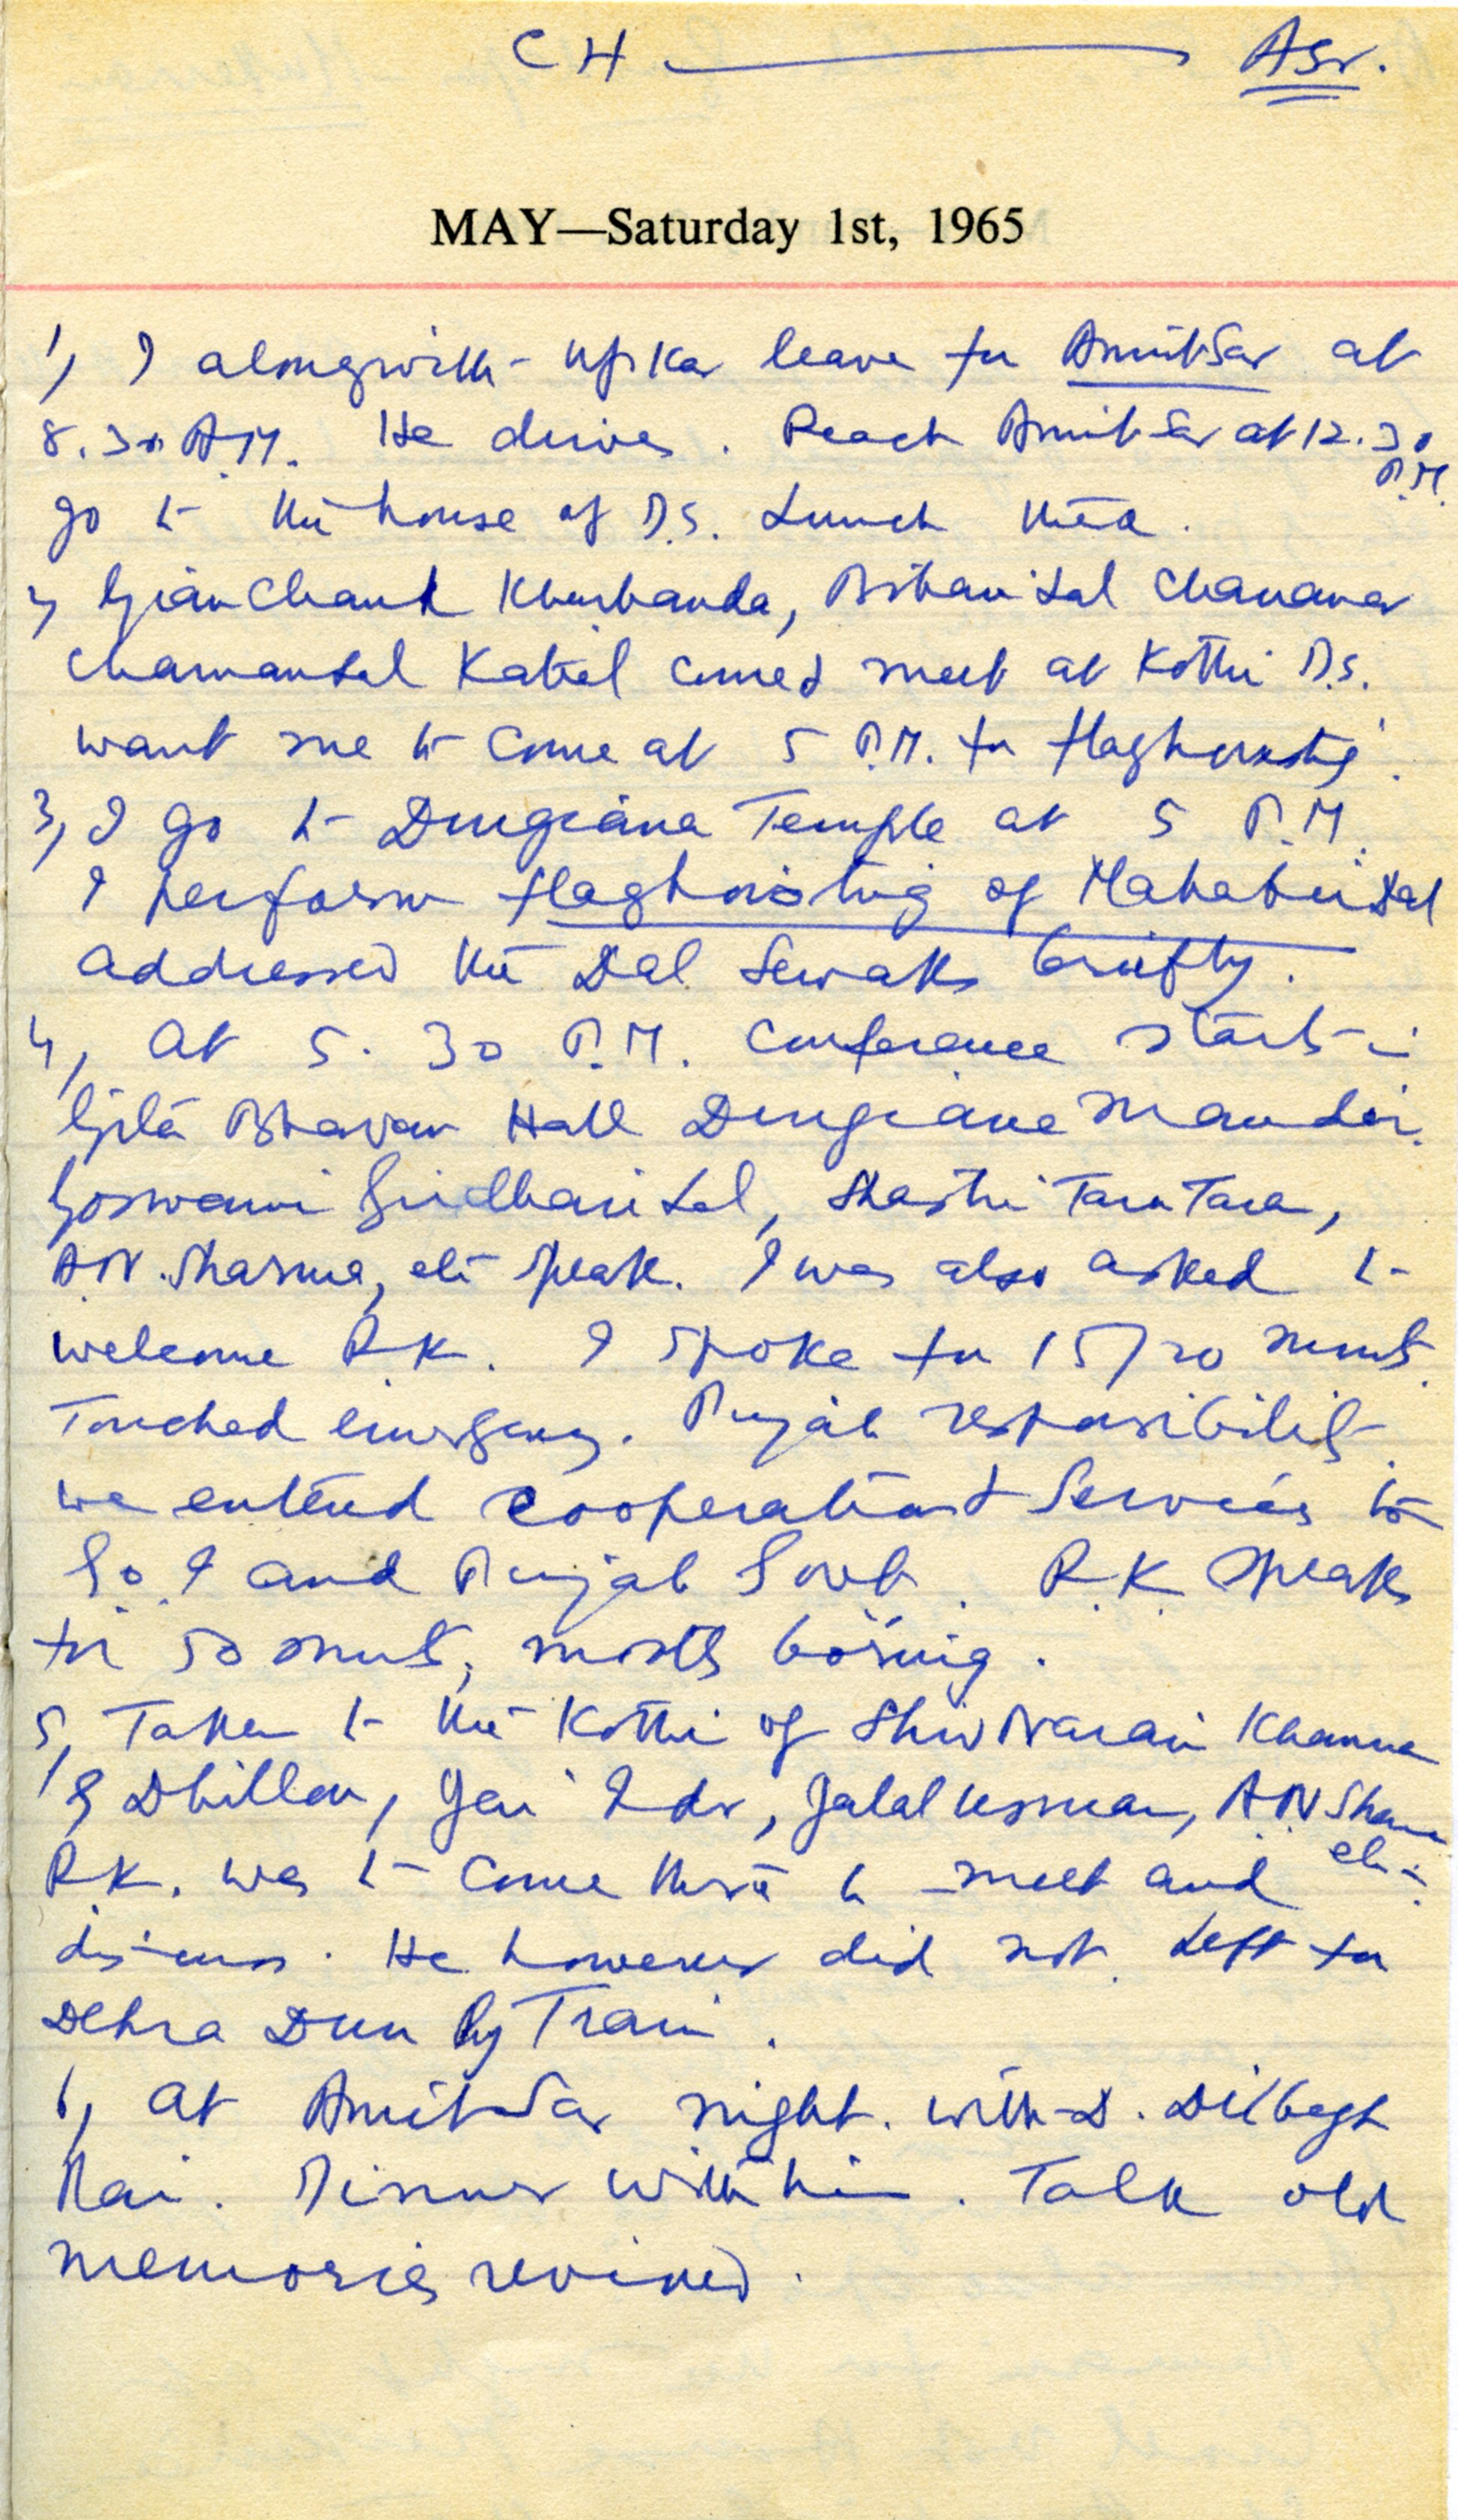 CH — Asr.
MAY—Saturday 1st, 1965
1, I alongwith Upkar leave for Amritsar at
8.30 A.M. He drives. Reach Amritsar at 12.30
P.M.
go to the house of D.S. Lunch there.
2, Gian Chand Khurbanda, Bihari Lal Chanana
Chamanlal Katial come & meet at Kothi D.S.
want me to come at 5 P.M. for flaghoisting.
3, I go to Durgiana Temple at 5 P.M.
I perform flaghoisting of Mahabir Dal
addressed the Dal Sewaks briefly.
4, at 5.30 P.M. Conference starts in
Gita Bhavan Hall Durgiana Mandir.
Goswami Girdhari Lal, Shastri Tara,
A.N. Sharma, etc speak. I was also asked to
welcome R.K. I spoke for 15/20 minuts.
Touched emergency. Punjab responsibility.
we extend cooperation & Services to
Go. I and Punjab Govt. R.K. speaks
for 50 minuts, mostly boring.
5, Taken to the Kothi of Shiv Narain Khanna
Dhillon, Jai Indr, Jalal Usman, A.N Sharma
etc.
R.K. was to come there to meet and
discuss. He however did not. Left for
Dehra Dun by Train.
6, at Amritsar night. with D. Dilbagh
Rai. Dinner with him. Talk old
memories revived.